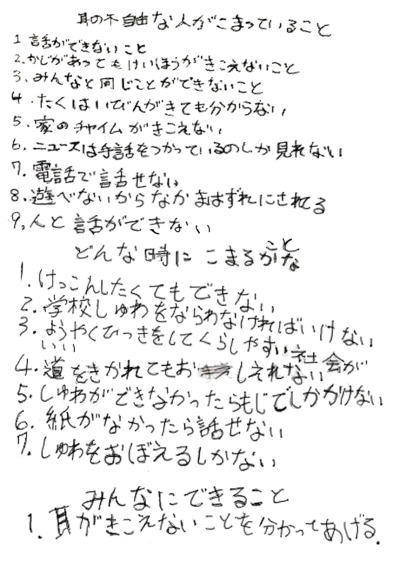 耳の不自由な人がこまっていること
1 話ができないこと
2.かじがあってもけいほうがきこえないこと
3.みんなと同じことができないこと
4.たくはいびんがきても分からない
5.家のチャイムがきこえない
6.ニュースは手話をつかっているのしか見れない
7.電話で話せない
8.遊べないからなかまはずれにされる
9.人と話ができない
どんな時にこまるかな
こと
1.けっこんしたくてもできない
2.学校しゅわをならわなければいけない
3.ようやくひっきをしてくらしやすい社会が
いい
4.道をきかれてもおしえれない
5.しゅわができなかったらもじでしかかけない
6.紙がなかったら話せない
7.しゅわをおぼえるしかない
みんなにできること
1.耳がきこえないことを分かってあげる.